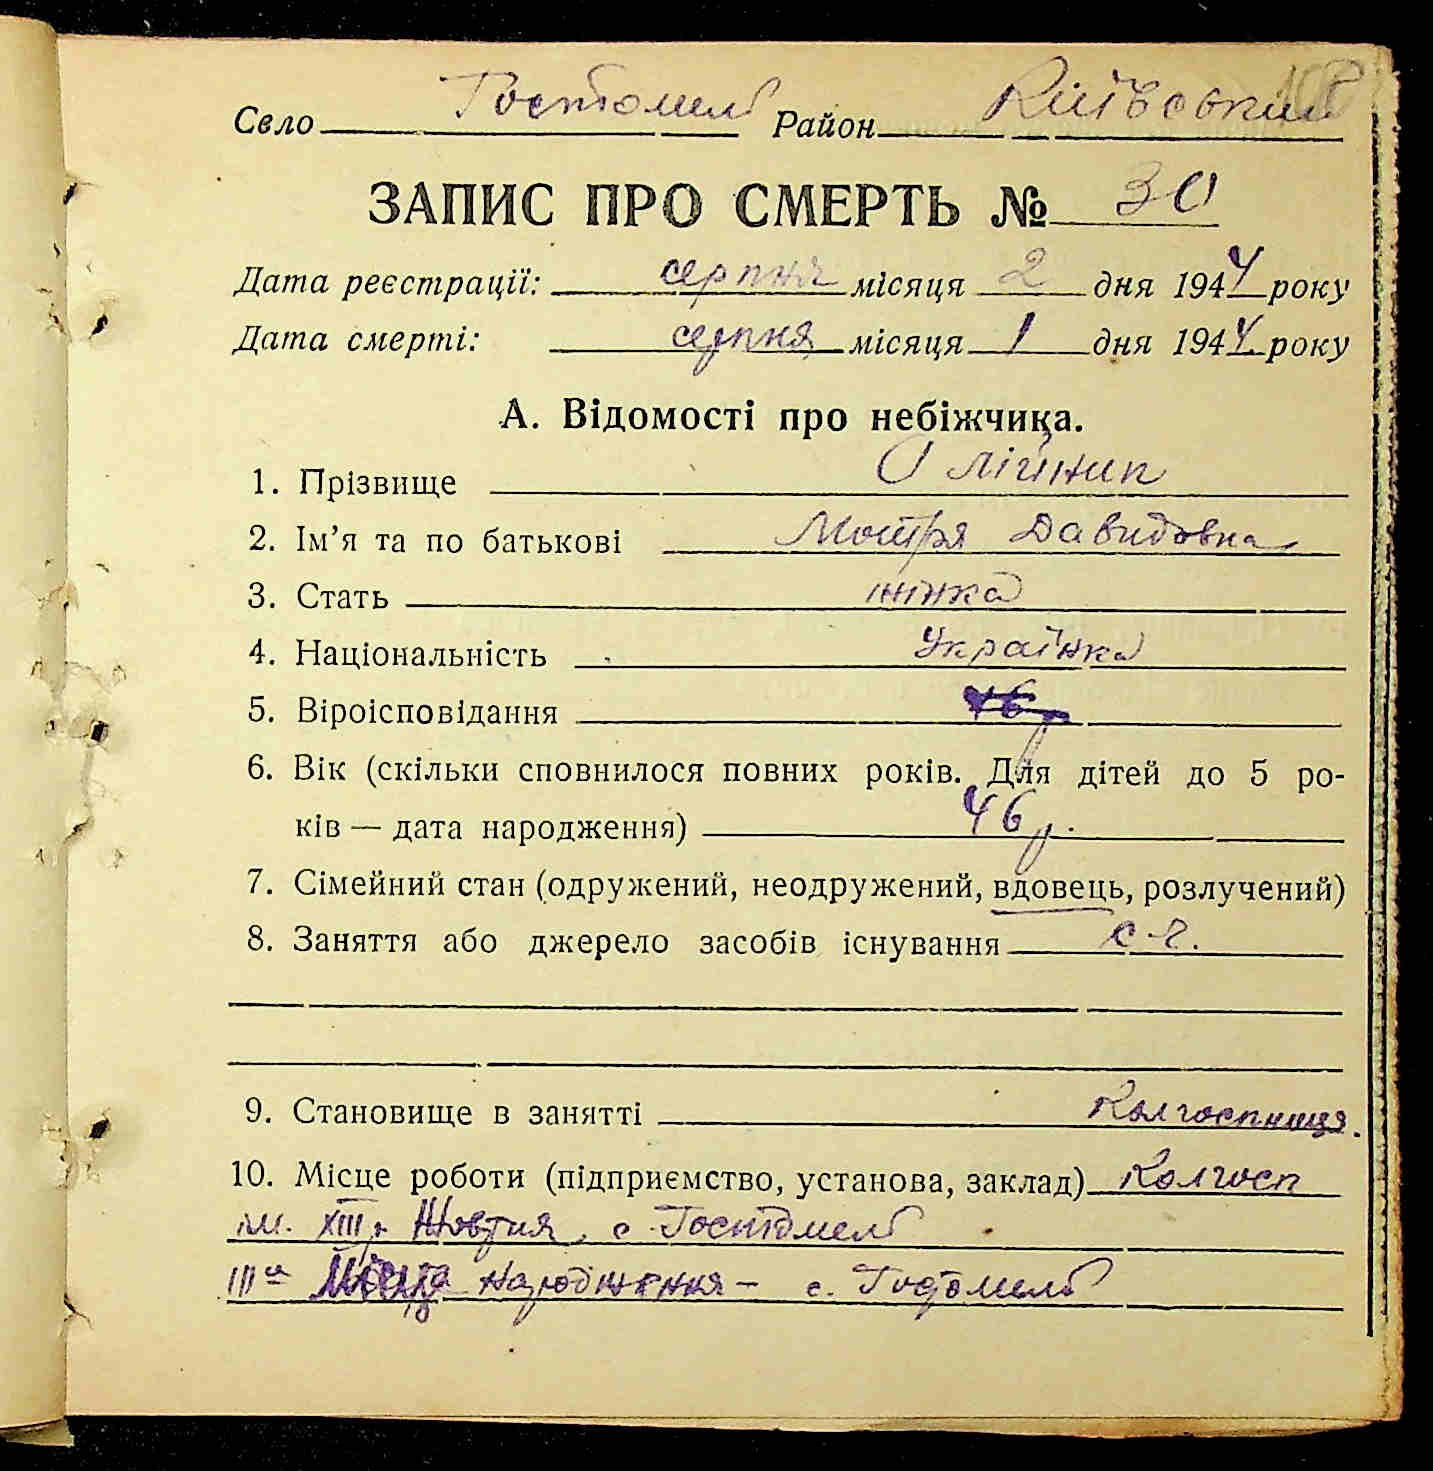 Село Гостомель Район Київський
ЗАПИС ПРО СМЕРТЬ № 30
Дата реєстрації: серпня місяця 2 дня 1944 року
Дата смерті: серпня місяця 1 дня 1944 року
А. Відомості про небіжчика.
1. Прізвище Олійник
2. Ім’я та по батькові Мотря Давидовна
3. Стать жінка
4. Національність Українка
5. Віроісповідання 46 р
6. Вік (скільки сповнилося повних років. Для дітей до 5 ро-
ків — дата народження) 46 р.
7. Сімейний стан (одружений, неодружений, вдовець, розлучений)
8. Заняття або джерело засобів існування с-г.
9. Становище в занятті Колгоспниця.
10. Місце роботи (підприємство, установа, заклад) Колгосп
ім. XIII р Жовтня, с. Гостомель
Місце народження - с. Гостомель